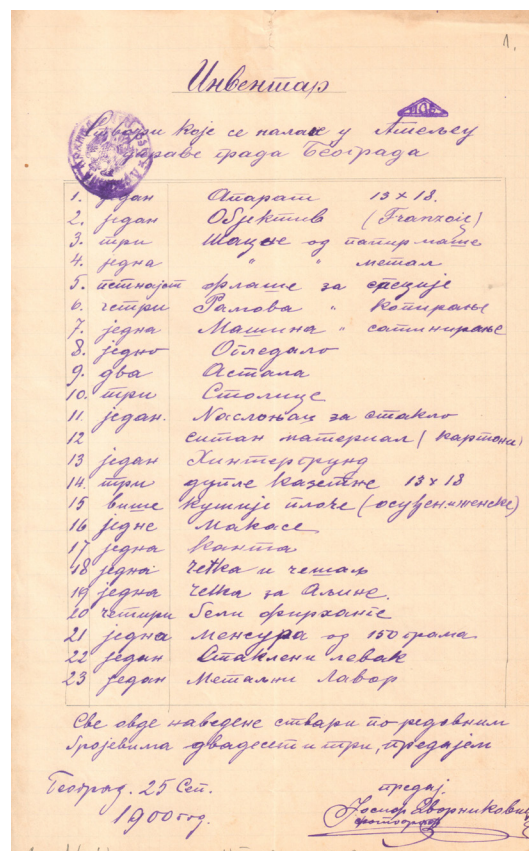 1.
Инвентар
Ствари које се налазе у Атељеу
Управе града Београда
1. један Апарат 13 x 18.
2. један Објектив (Franzois)
3. три Шацне од папир маше
4. једна " " метал
5. петнајст флаше за специје
6. четри Рамова " копирање
7. једна Машина " сатинирање
8. једно Огледало
9. два Астала
10. три Столице
11. један. Наслоњач за стакло
12 ситан материал (картони)
13 један Хинтергрунд
14. три дупле казетне 13 x 18
15 више кутије плоче (осуђен. и женске)
16 једне Макасе
17 једна Канта
18 једна четка и чешаљ
19 једна четка за Аљине.
20 четири бели фирханге
21 једна Мензура од 150 грама
22 један Стаклени левак
23 један Метални Лавор
Све овде наведене ствари по редовним
бројевима двадесет и три, предајем
Београд. 25 Сеп.
1900 год.
предај.
Јосиф Дворниковић
фотограф